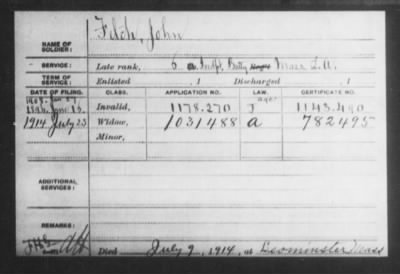 Fitch, John
NAME OF SOLDIER:
SERVICE: Late rank, 6 Indpt. Batty Mass L.A.
TERM OF SERVICE: Enlisted , 1 Discharged , 1
DATE OF FILING. CLASS. APPLICATION NO. LAW. CERTIFICATE NO.
Invalid, 1178.270 J 1143.490
1914 July 23 Widow, 1031488 a 782495
Minor,
ADDITIONAL SERVICES:
REMARKS:
Died July 9, 1914, at Leominster Mass